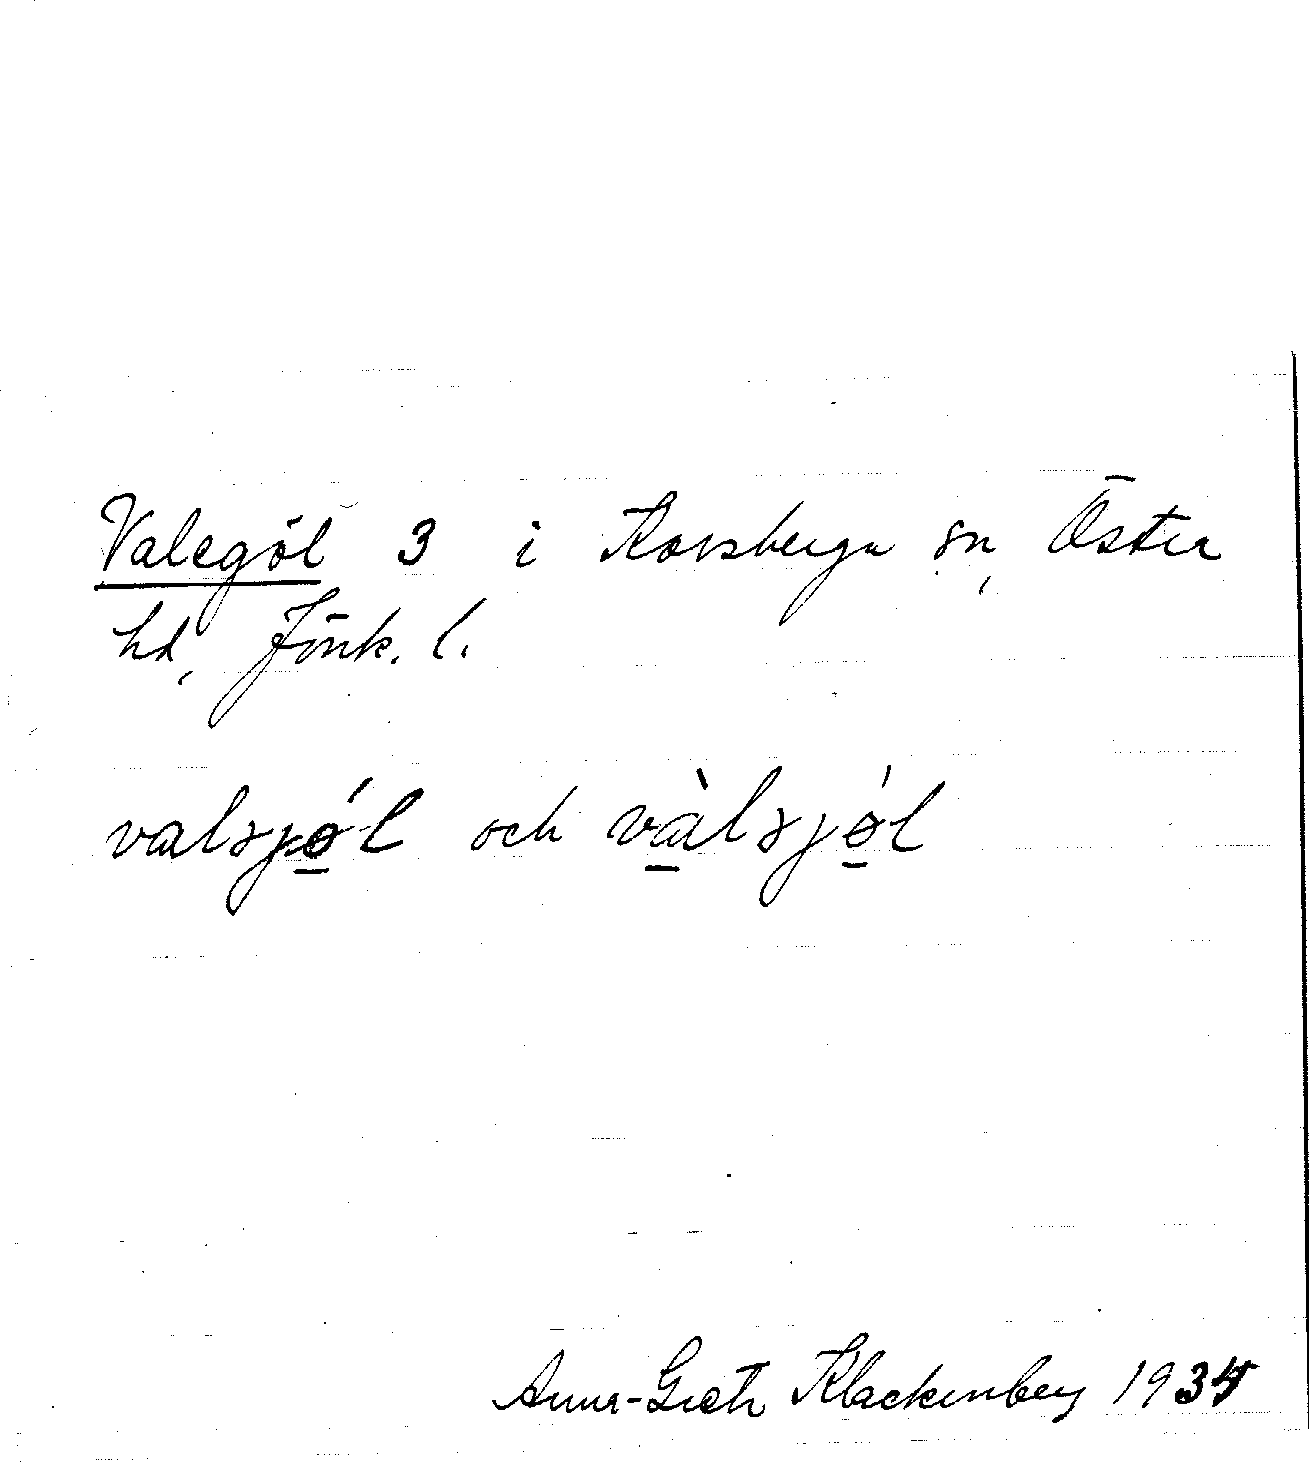 Valegöl 3 i Korsberga sn, Östra
hd, Jönk. l.
valsjǿl och vàlsjǿl
Anna-Greta Klackenberg 1934